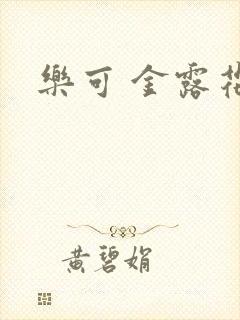 樂可 金露花
黃碧娟